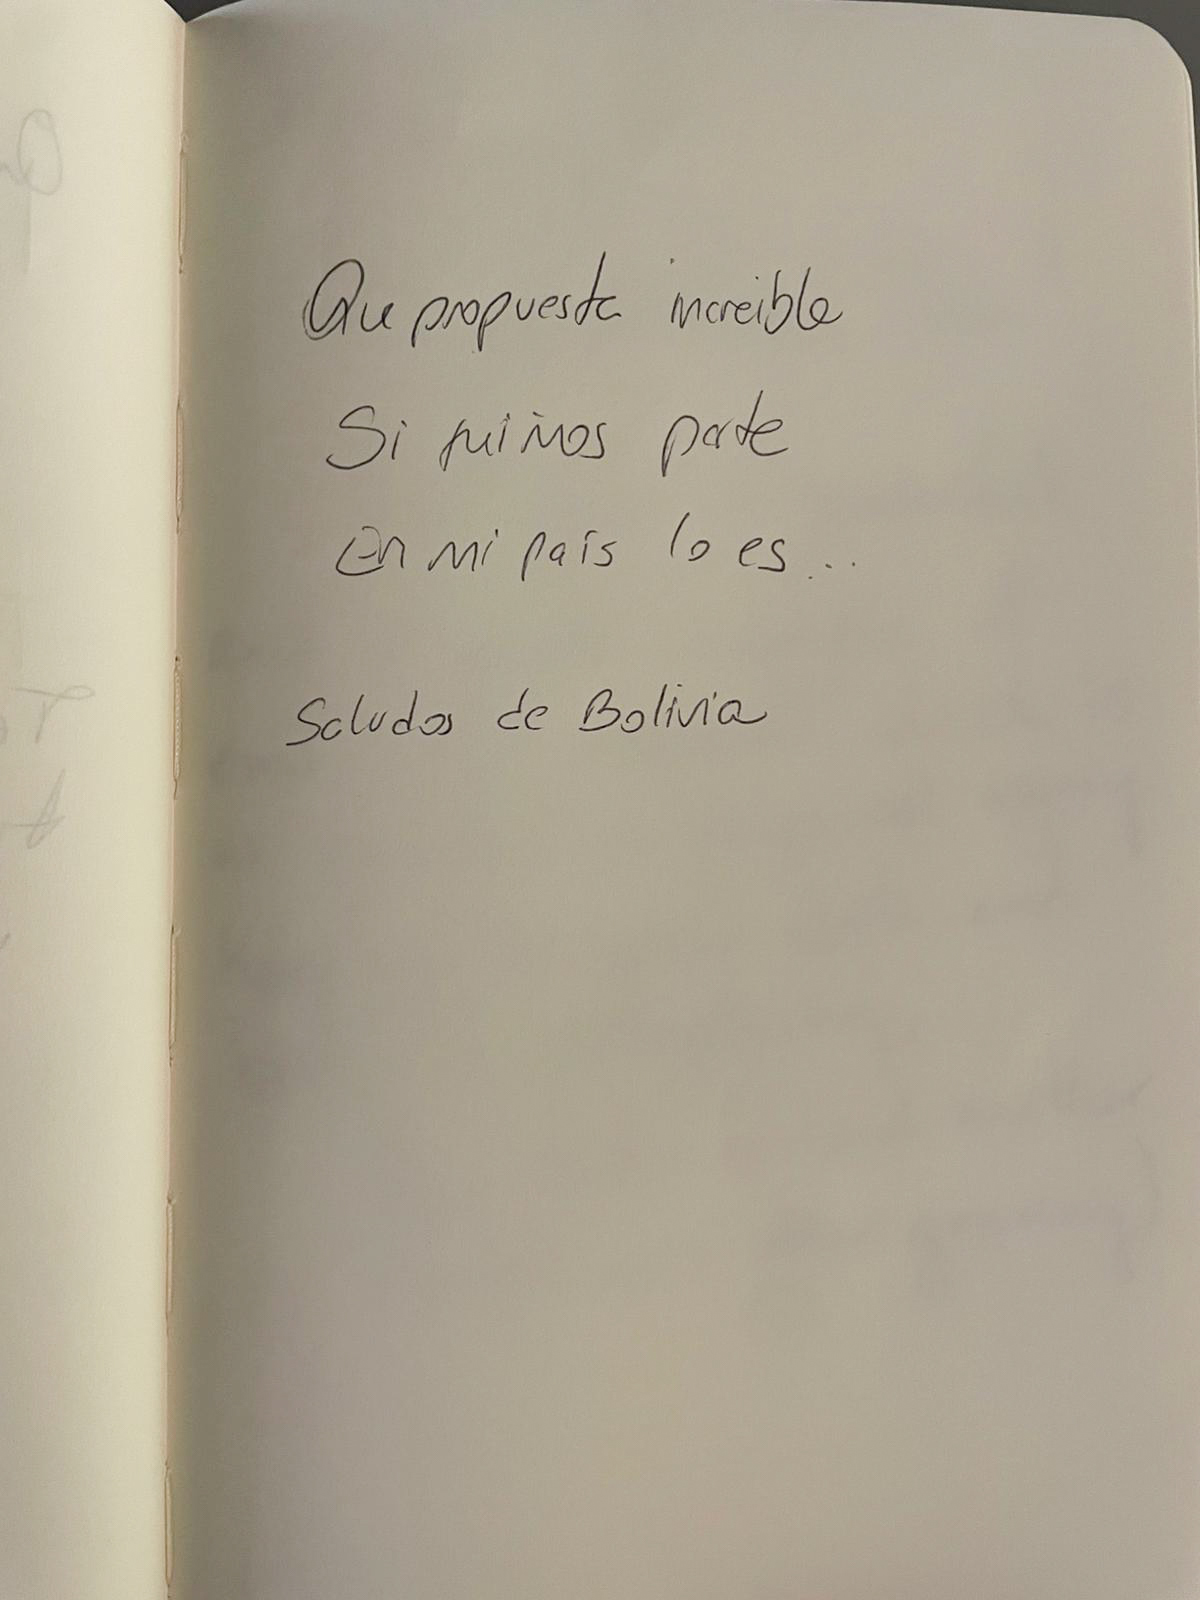 Que propuesta increible
Si fuimos parte
En mi país lo es...
Saludos de Bolivia